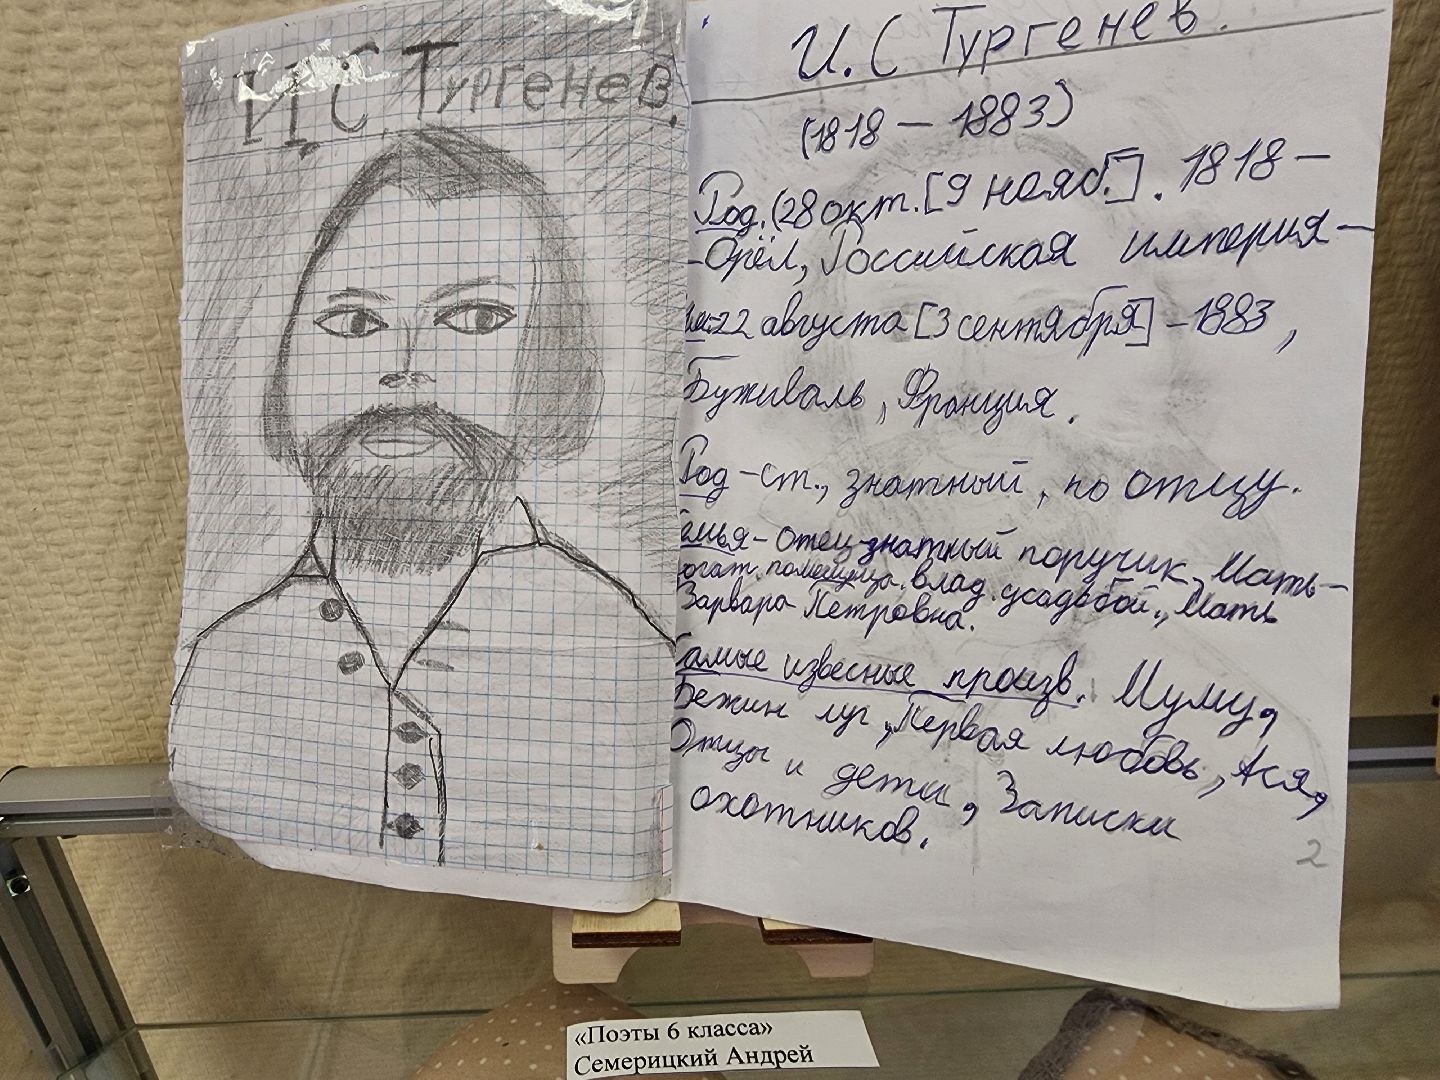 И.С. Тургенев.
И.С Тургенев.
(1818 – 1883)
Род. (28 окт. [9 нояб.]. 1818 –
– Орёл, Российская империя –
22 августа [3 сентября] – 1883,
Буживаль, Франция.
Род – ст., знатный, по отцу.
емья – отец-знатный поручик, Мать –
огат. помещица. влад. усадьбой., Мать
Варвара Петровна.
Самые извесные произв. Муму,
Бежин луг, Первая любовь, Ася,
Отцы и дети, Записки
охотников.
2
«Поэты 6 класса»
Семерицкий Андрей